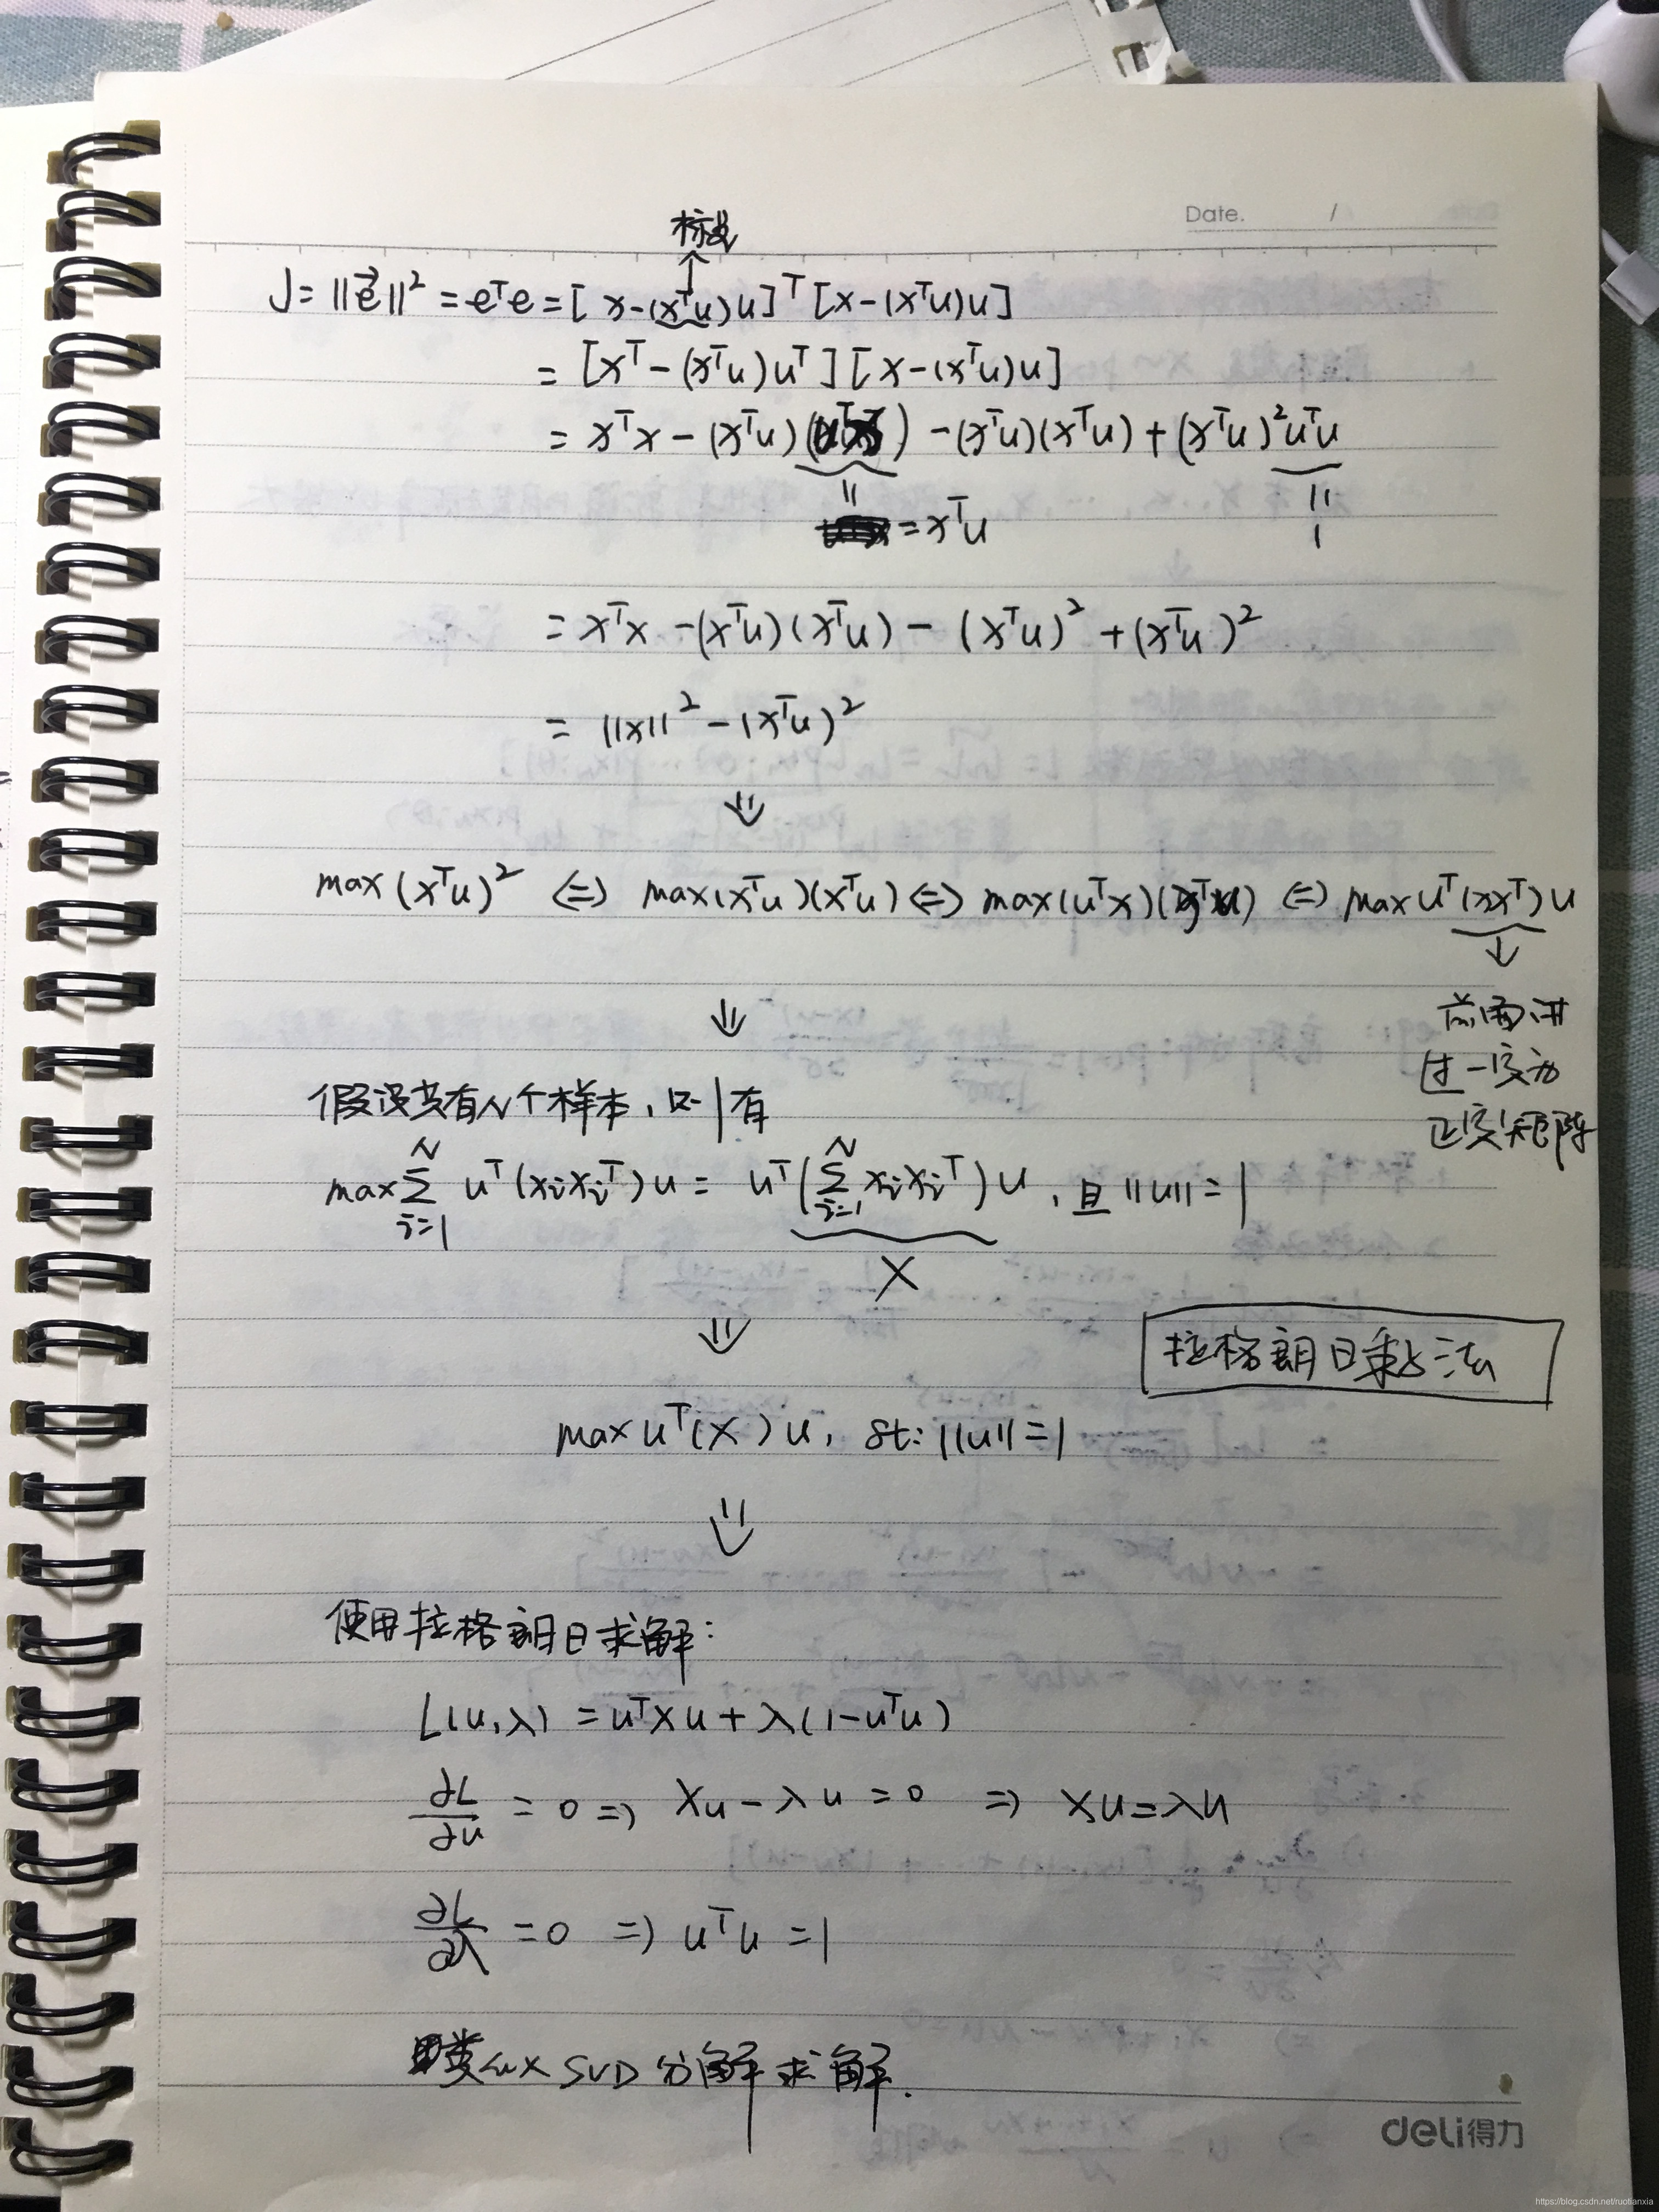 Date. /
标量
J = ||e⃗||² = eᵀe = [x-(xᵀu)u]ᵀ[x-(xᵀu)u]
= [xᵀ-(xᵀu)uᵀ][x-(xᵀu)u]
= xᵀx - (xᵀu)( ) - (xᵀu)(xᵀu) + (xᵀu)²uᵀu
|| ||
= xᵀu 1
= xᵀx - (xᵀu)(xᵀu) - (xᵀu)² + (xᵀu)²
= ||x||² - (xᵀu)²
⇓
max (xᵀu)² <=> max(xᵀu)(xᵀu) <=> max(uᵀx)(xᵀu) <=> max uᵀ(xxᵀ)u
↓
⇓
前面讲
过一定为
正定矩阵
假设共有N个样本, 则有
max ∑ᵢ₌₁ᴺ uᵀ(xᵢxᵢᵀ)u = uᵀ(∑ᵢ₌₁ᴺ xᵢxᵢᵀ)u, 且||u||=1
X
⇓
拉格朗日乘子法
max uᵀ(X)u, st: ||u||=1
⇓
使用拉格朗日求解:
L(u,λ) = uᵀXu + λ(1-uᵀu)
∂L/∂u = 0 => Xu - λu = 0 => Xu = λu
∂L/∂λ = 0 => uᵀu = 1
类似 SVD 分解求解.
deli得力
https://blog.csdn.net/ruotianxia